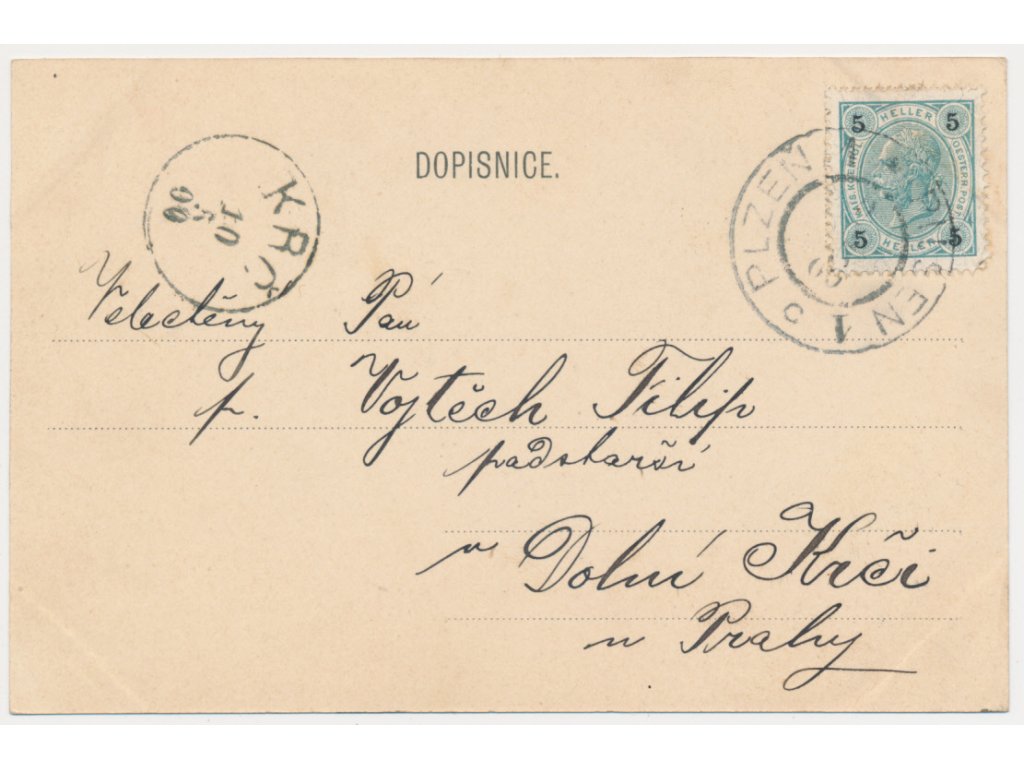 DOPISNICE.
KRČ
10
5
00
PLZEN 1 PILSEN
00
5 HELLER 5
KAIS. KÖNIGL. OESTERR. POST
5 HELLER 5
Velectěný Pán
p. Vojtěch Filip
padstarší
v Dolní Krči
u Prahy